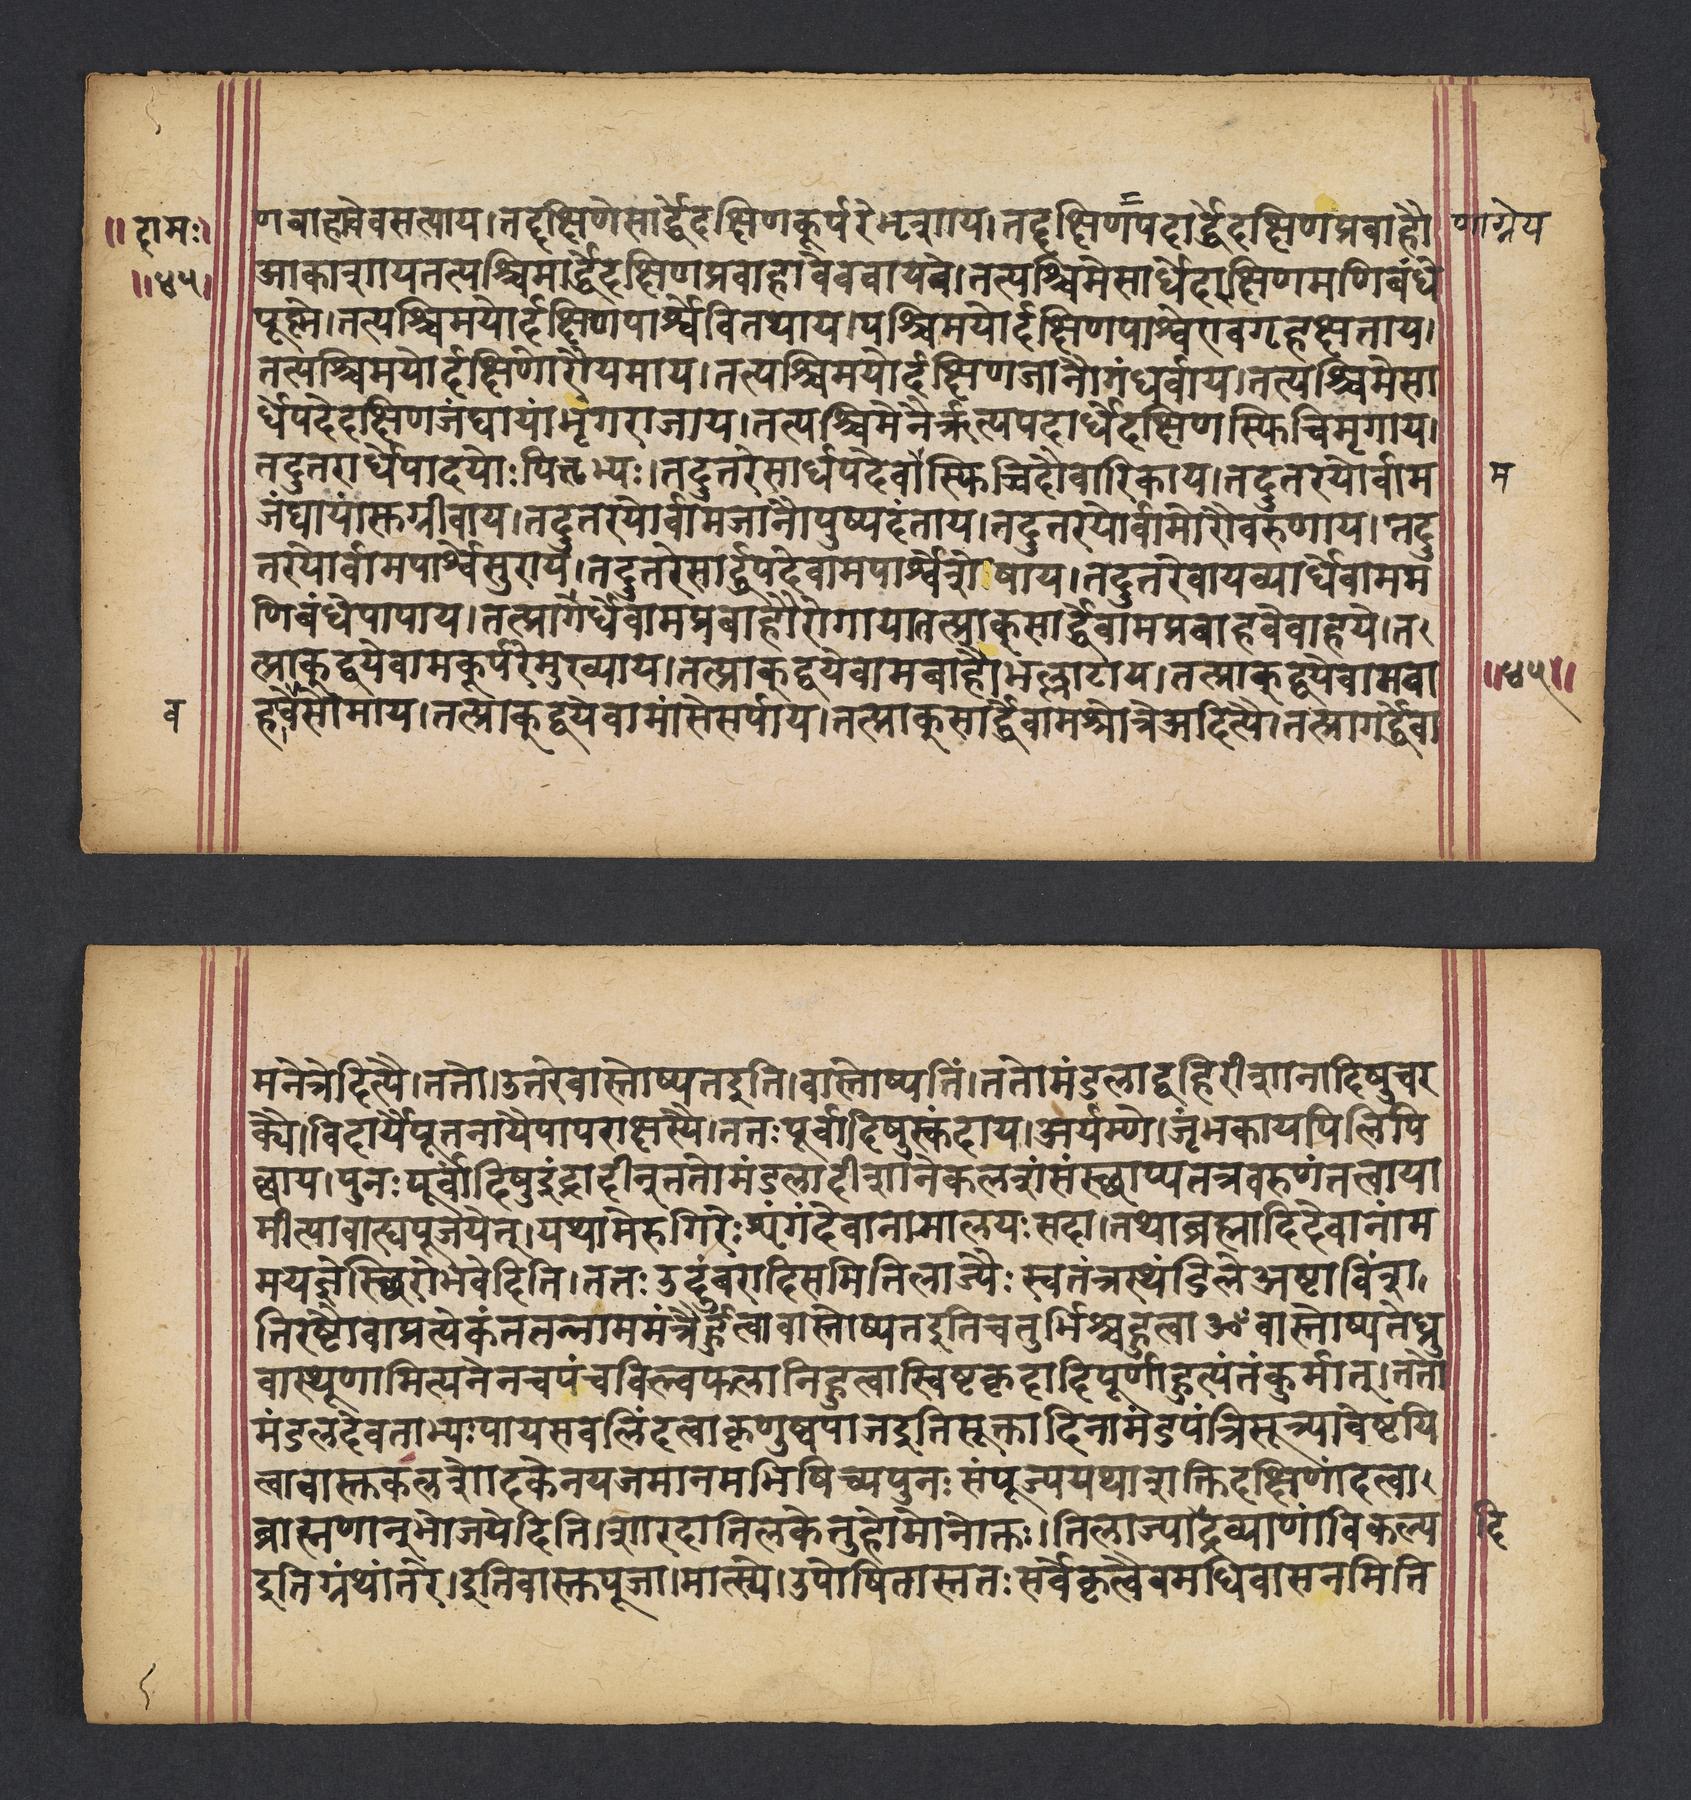 ॥ हामः॥
॥४५॥
णबाहावेवसत्याय।तद्दक्षिणेसार्द्धेदक्षिणकूर्परेभृशाय।तद्दक्षिणपदार्द्धेदक्षिणप्रबाहौ
णाग्नेय
आकाशायतत्पश्चिमार्द्धेदक्षिणप्रबाहावेववायवे।तत्पश्चिमेसार्धेदक्षिणमणिबंधे
पूष्णे।तत्पश्चिमयोर्दक्षिणपार्श्वेवितथाय।पश्चिमयोर्दक्षिणपार्श्वेएवगृहक्षताय।
तत्पश्चिमयोर्दक्षिणोरौयमाय।तत्पश्चिमयोर्दक्षिणजानौगंधर्वाय।तत्पश्चिमेसा
र्धेपदेदक्षिणजंघायांभृंगराजाय।तत्पश्चिमेनैर्ऋत्यपदार्धेदक्षिणस्फिचिमृगाय।
तदुत्तरार्धेपादयोःपितृभ्यः।तदुत्तरेसार्धपदेवास्फिच्चिदौवारिकाय।तदुत्तरयोर्वाम
म
जंघायांसुग्रीवाय।तदुत्तरयोर्वामजानौपुष्पदंताय।तदुत्तरयोर्वामोरौवरुणाय।तदु
त्तरयोर्वामपार्श्वेसुराय।तदुत्तरेसार्द्धपदेवामपार्श्वेशोषाय।तदुत्तरेवायव्यार्धेवामम
णिबंधेपापाय।तत्प्रागर्धेवामप्रबाहौरोगाय।तत्प्राक्सार्द्धेवामप्रबाहवेवाहये।त
त्प्राक्द्वयेवामकूर्परेमुख्याय।तत्प्राक्द्वयेवामबाहौभल्लाटाय।तत्प्राक्द्वयेवामबा
॥४५॥
हवेसोमाय।तत्प्राक्द्वयेवामांसेसर्पाय।तत्प्राक्सार्द्धेवामश्रोत्रेअदित्यै।तत्प्रागर्द्धेवा
व
मनेत्रेदित्यै।ततो।उत्तरेवास्तोष्पतइति।वास्तोष्पतिं।ततोमंडलाद्बहिरीशानादिषुचर
क्यै।विदार्यैपूतनायैपापराक्षस्यै।ततःपूर्वादिषुस्कंदाय।अर्यम्णे।जृंभकायपिलिपि
च्छाय।पुनःपूर्वादिषुइंद्रादीन्ततोमंडलादीशानेकलशंसंस्थाप्यतत्रवरुणंतत्वाया
मीत्यावाह्यपूजयेत्।यथामेरुगिरेःशृंगंदेवानामालयःसदा।तथाब्रह्मादिदेवानांम
मयज्ञेस्थिरोभवेदिति।ततःउदुंबरादिसमित्तिलाज्यैःस्वतंत्रस्थंडिलेअष्टाविंश
तिरष्टौवाप्रत्येकंतत्तन्नाममंत्रैर्हुत्वावास्तोष्पतइतिचतुर्भिश्चहुत्वाॐवास्तोष्पतेध्रु
वास्थूणामित्यनेनचपंचबिल्वफलानिहुत्वास्विष्टकृदादिपूर्णाहुत्यंतंकुर्यात्।ततो
मंडलदेवताभ्यःपायसबलिंदत्वाकृणुष्वपाजइतिसूक्तादिनामंडपंत्रिसूत्र्यावेष्टयि
त्वावास्तुकलशोदकेनयजमानमभिषिच्यपुनःसंपूज्ययथाशक्तिदक्षिणांदत्वा
ब्राह्मणान्भोजयेदिति।शारदातिलकेतुहोमोनोक्तः।तिलाज्याद्रव्याणांविकल्प
दि
इतिग्रंथांतरे।इतिवास्तुपूजा।मात्स्ये।उपोषितास्ततःसर्वेकृत्वैवमधिवासनमिति